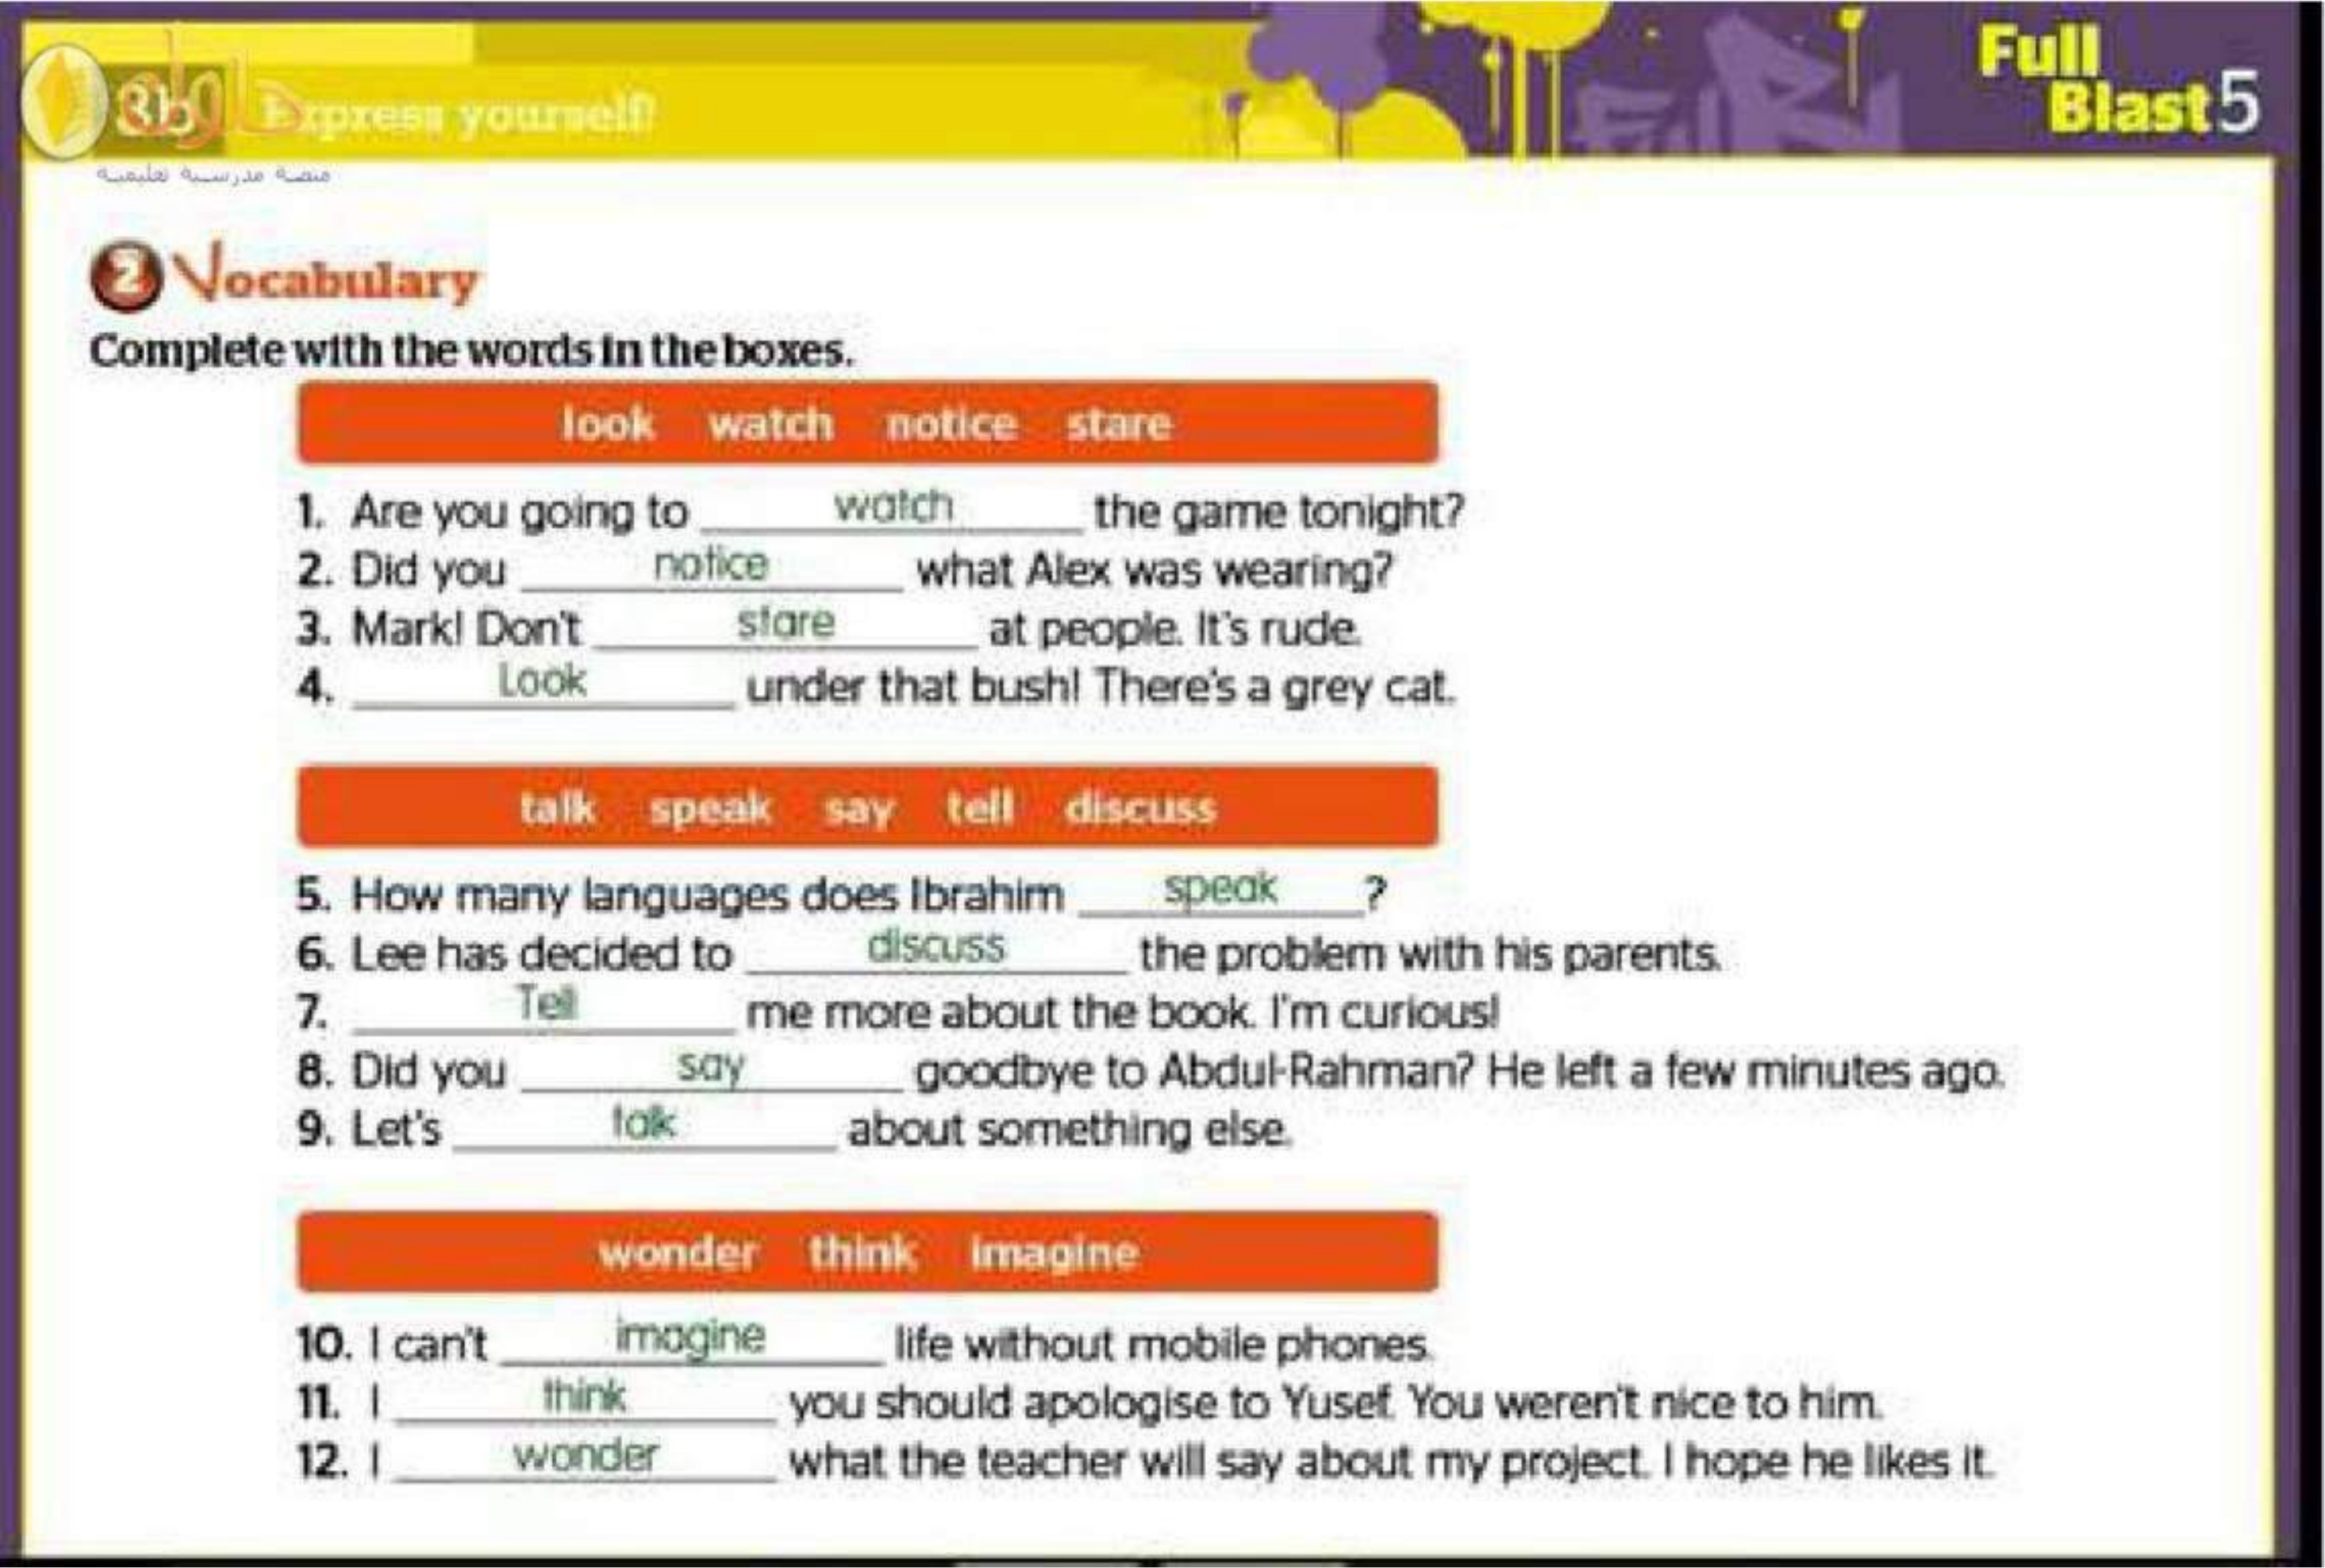 Full
Blast 5
3b Express yourself!
منصة مدرسية تعليمية
2 Vocabulary
Complete with the words in the boxes.
look watch notice stare
1. Are you going to watch the game tonight?
2. Did you notice what Alex was wearing?
3. Mark! Don't stare at people. It's rude.
4. Look under that bush! There's a grey cat.
talk speak say tell discuss
5. How many languages does Ibrahim speak ?
6. Lee has decided to discuss the problem with his parents.
7. Tell me more about the book. I'm curious!
8. Did you say goodbye to Abdul-Rahman? He left a few minutes ago.
9. Let's talk about something else.
wonder think imagine
10. I can't imagine life without mobile phones.
11. I think you should apologise to Yusef. You weren't nice to him.
12. I wonder what the teacher will say about my project. I hope he likes it.